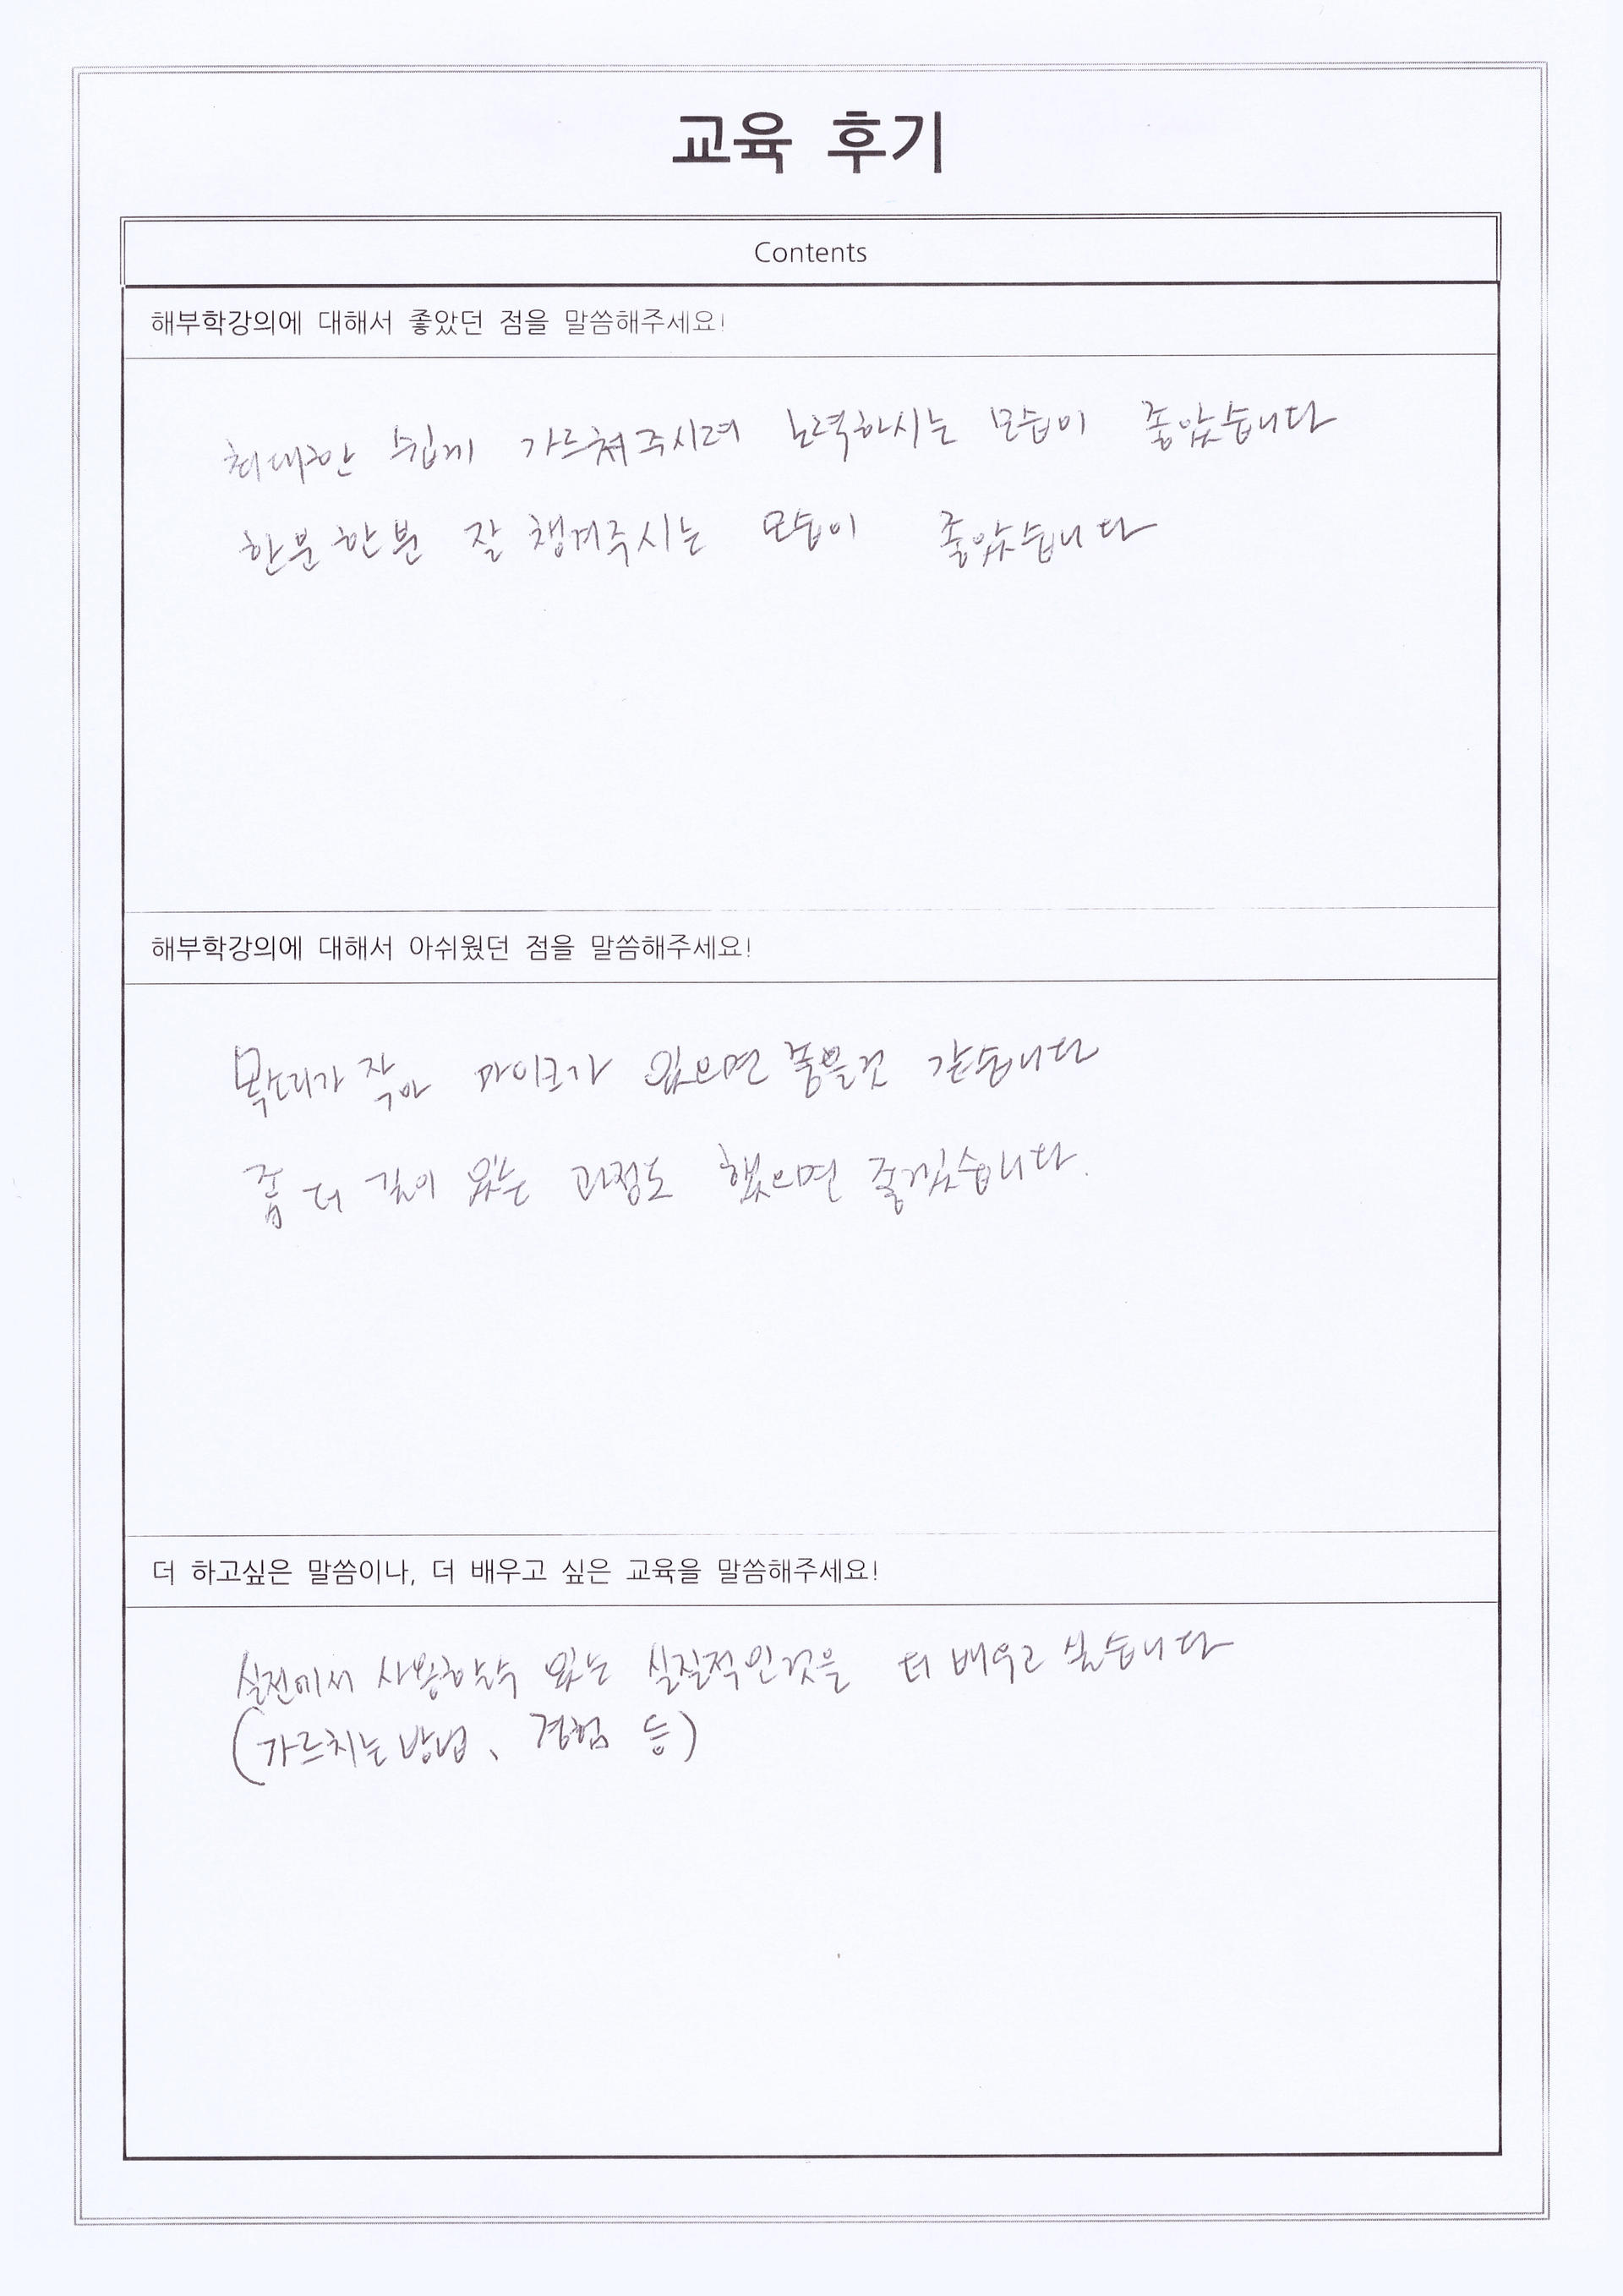 교육 후기
Contents
해부학강의에 대해서 좋았던 점을 말씀해주세요!
최대한 쉽게 가르쳐주시려 노력하시는 모습이 좋았습니다
한분한분 잘 챙겨주시는 모습이 좋았습니다
해부학강의에 대해서 아쉬웠던 점을 말씀해주세요!
목소리가 작아 마이크가 있으면 좋을것 같습니다
좀 더 깊이 있는 과정도 했으면 좋겠습니다.
더 하고싶은 말씀이나, 더 배우고 싶은 교육을 말씀해주세요!
실전에서 사용할수 있는 실질적인것을 더 배우고 싶습니다
(가르치는 방법, 경험 등)